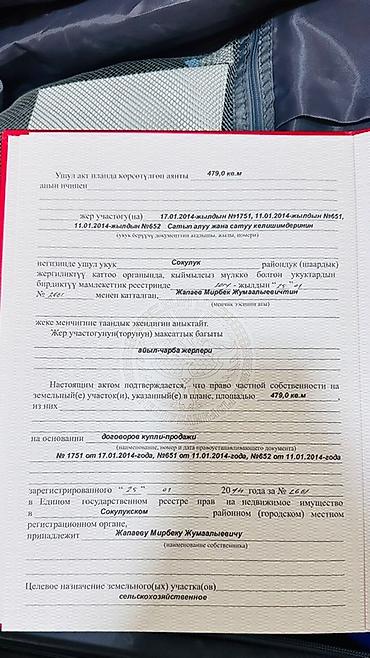 Ушул акт планда көрсөтүлгөн аянты 479,0 кв.м
анын ичинен
жер участогу(на) 17.01.2014-жылдын №1751, 11.01.2014-жылдын №651,
11.01.2014-жылдын №652 Сатып алуу жана сатуу келишимдеринин
(укук берүүчү документтин аталышы, жылы, номери)
негизинде ушул укук Сокулук райондук (шаардык)
жергиликтүү каттоо органында, кыймылсыз мүлккө болгон укуктардын
бирдиктүү мамлекеттик реестринде 2014 - жылдын " 25 " 01
№ 2601 менен катталган, Жапаев Мирбек Жумаалыевичтин
(менчик ээсинин аты)
жеке менчигине таандык экендигин аныктайт.
Жер участогунун(торунун) максаттык багыты
айыл-чарба жерлери
Настоящим актом подтверждается, что право частной собственности на
земельный(е) участок(и), указанный(е) в плане, площадью 479,0 кв.м ,
из них
на основании договоров купли-продажи
(наименование, номер и дата правоустанавливающего документа)
№ 1751 от 17.01.2014-года, №651 от 11.01.2014-года, №652 от 11.01.2014-года
зарегистрированного " 25 " 01 2014 года за № 2601
в Едином государственном реестре прав на недвижимое имущество
в Сокулукском районном (городском) местном
регистрационном органе,
принадлежит Жапаеву Мирбеку Жумаалыевичу
(наименование собственника)
Целевое назначение земельного(ых) участка(ов)
сельскохозяйственное